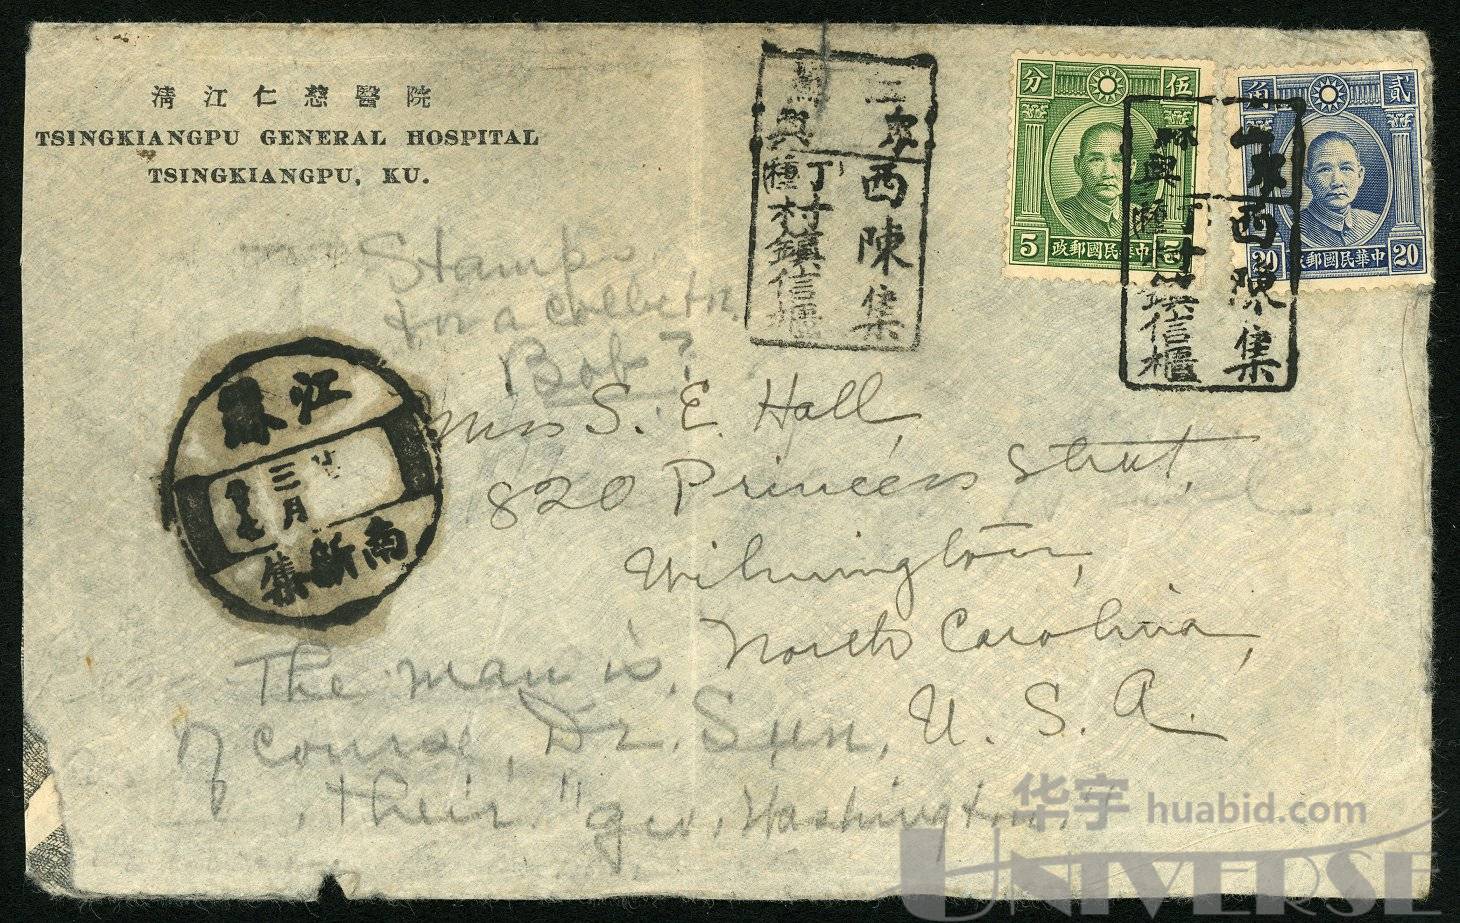 清江仁慈醫院
TSINGKIANGPU GENERAL HOSPITAL
TSINGKIANGPU, KU.
伍分
5 5
中華民國郵政
貳角
20 20
中華民國郵政
西陳集
丁村鎮信櫃
西陳集
鎮信櫃
Stamps
for a collector.
Bob?
Miss S. E. Hall,
820 Princess Street,
Wilmington,
North Carolina,
U. S. A.
江蘇
三月
南新集
The man is,
of course, Dr. Sun,
their "Geo. Washington."
华宇 huabid.com
UNIVERSE